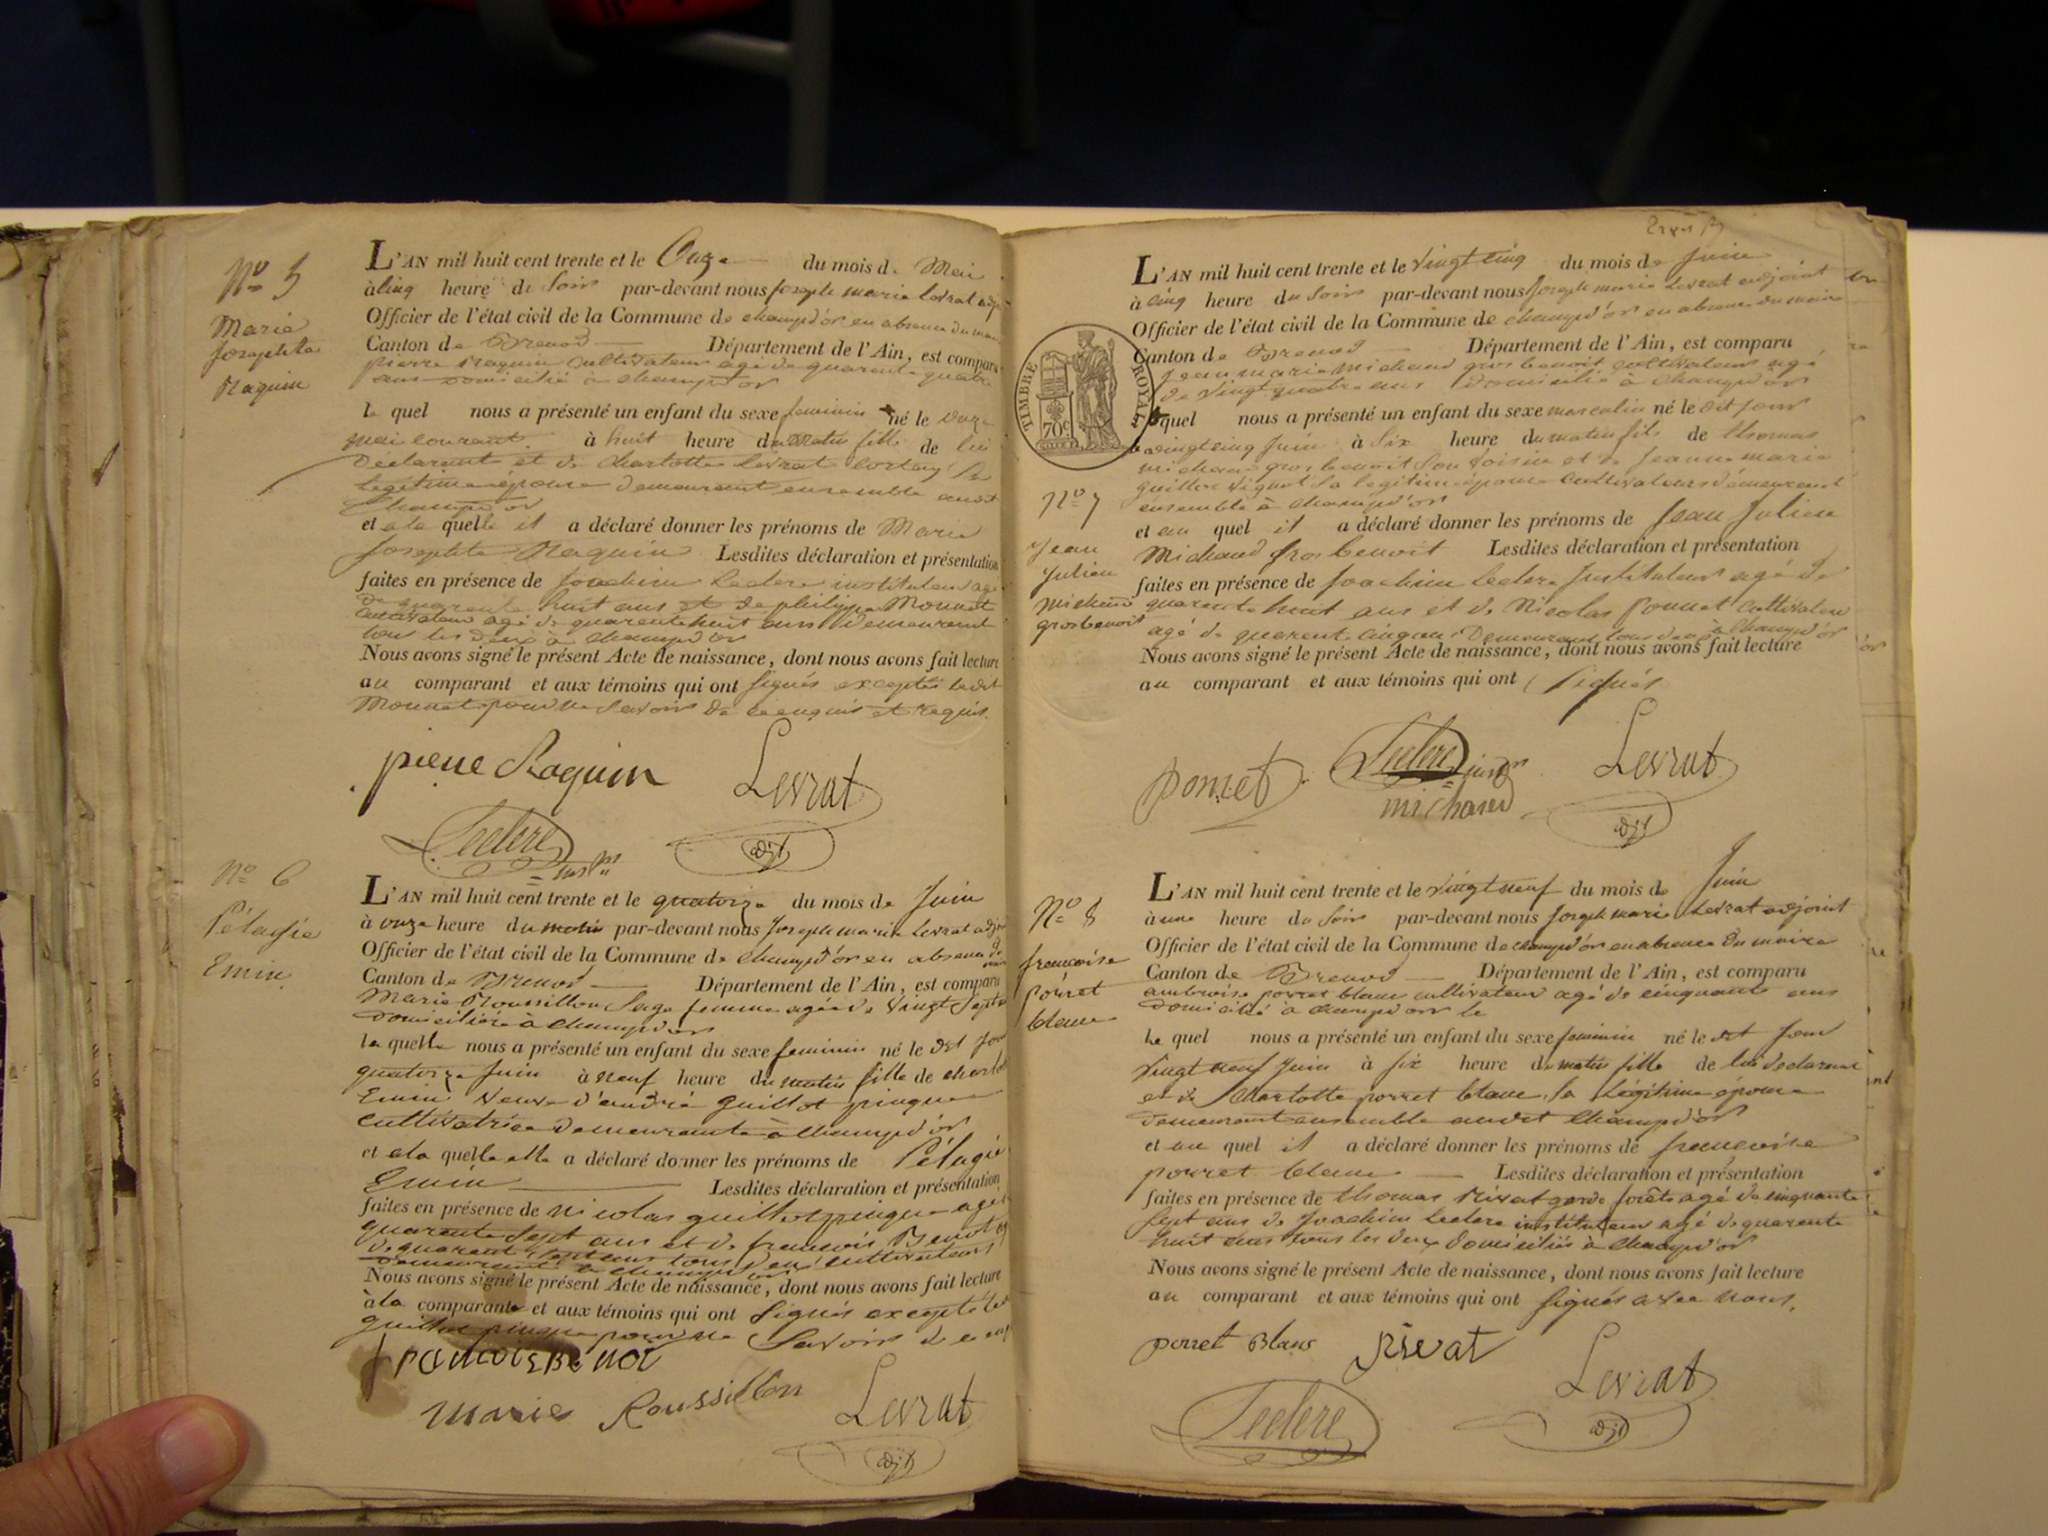 N° 5
Marie
Josephte
Raquin
L'AN mil huit cent trente et le Onze du mois de Mai
à cinq heure du Soir par-devant nous Joseph marie Levrat adjoint
Officier de l'état civil de la Commune de champd'or en absence du maire
Canton de Brenod Département de l'Ain, est comparu
pierre Raquin Cultivateur agé de quarente quatre
ans domicilié à champd'or
le quel nous a présenté un enfant du sexe feminin né le onze
mai courant à huit heure du matin fille de lui
Déclarant et de charlotte Levrat Sa
legitime épouse demeurant ensemble audit
Champd'or
et a la quelle il a déclaré donner les prénoms de Marie
Josephte Raquin Lesdites déclaration et présentation
faites en présence de Joachim Leclere instituteur agé
de quarente huit ans et de philippe Monnet
Cultivateur agé de quarente huit ans demeurant
tous les deux à champd'or
Nous avons signé le présent Acte de naissance, dont nous avons fait lecture
au comparant et aux témoins qui ont signés exceptés ledit
Monnet pour ne Savoir de ce enquis et requis.
pierre Raquin Levrat
Leclere adjt
N° 6
Pélagie
Emin
L'AN mil huit cent trente et le quatorze du mois de Juin
à onze heure du matin par-devant nous Joseph marie Levrat adjoint
Officier de l'état civil de la Commune de champd'or en absence du maire
Canton de Brenod Département de l'Ain, est comparu
Marie Roussillon Sage femme agée de vingt Sept
domiciliée à champd'or
la quelle nous a présenté un enfant du sexe feminin né le dit jour
quatorze Juin à neuf heure du matin fille de charlotte
Emin veuve d'andré guillot pingue
Cultivatrice demeurante à champd'or
et a la quelle elle a déclaré donner les prénoms de Pélagie
Emin Lesdites déclaration et présentation
faites en présence de nicolas guillot pingue agé
quarente Sept ans et de francois Benoit agé
de quarente Sept ans tous deux cultivateurs
demeurant à champd'or
Nous avons signé le présent Acte de naissance, dont nous avons fait lecture
à la comparante et aux témoins qui ont Signés excepté led
guillot pingue pour ne Savoir de ce enq
francois Benoi
Marie Roussillon Levrat
adjt
TIMBRE ROYAL
70c
N° 7
Jean
Julien
michaud
grosbenoit
L'AN mil huit cent trente et le vingt cinq du mois de Juin
à cinq heure du Soir par-devant nous Joseph marie Levrat adjoint
Officier de l'état civil de la Commune de champd'or en absence du maire
Canton de Brenod Département de l'Ain, est comparu
Jean marie michaud gros benoit cultivateur agé
de vingt quatre ans domicilié à champd'or
le quel nous a présenté un enfant du sexe masculin né le dit jour
vingt cinq Juin à Six heure du matin fils de thomas
michaud gros benoit Son voisin et de Jeanne marie
guillot viguet Sa legitime épouse Cultivateurs demeurant
ensemble à champd'or
et au quel il a déclaré donner les prénoms de Jean Julien
Michaud gros benoit Lesdites déclaration et présentation
faites en présence de Joachim Leclere Instituteur agé de
quarente huit ans et de Nicolas Ponnet Cultivateur
agé de quarente cinq ans Demeurant tous deux à champd'or
Nous avons signé le présent Acte de naissance, dont nous avons fait lecture
au comparant et aux témoins qui ont Signés
ponnet Leclere Levrat
michaud adjt
N° 8
francoise
porret
blanc
L'AN mil huit cent trente et le vingt neuf du mois de Juin
à une heure du Soir par-devant nous Joseph marie Levrat adjoint
Officier de l'état civil de la Commune de champd'or en absence du maire
Canton de Brenod Département de l'Ain, est comparu
ambroise porret blanc cultivateur agé de cinquante ans
domicilié à champd'or le
le quel nous a présenté un enfant du sexe feminin né le dit jour
vingt neuf Juin à six heure du matin fille de lui declarant
et de charlotte porret blanc sa légitime épouse
demeurant ensemble audit champd'or
et au quel il a déclaré donner les prénoms de francoise
porret blanc Lesdites déclaration et présentation
faites en présence de thomas Rivat garde forêt agé de cinquante
Sept ans de Joachim Leclere instituteur agé de quarente
huit ans tous les deux domiciliés à champd'or
Nous avons signé le présent Acte de naissance, dont nous avons fait lecture
au comparant et aux témoins qui ont signés avec nous.
porret Blanc Rivat Levrat
Leclere adjt